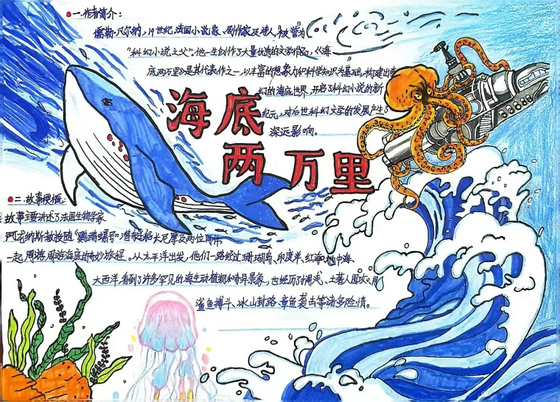 一.作者简介:
儒勒·凡尔纳,19世纪法国小说家、剧作家及诗人,被誉为
"科幻小说之父",他一生创作了大量优秀的文学作品,《海
底两万里》是其代表作之一,以丰富的想象力和科学知识为基础,构建出奇
幻的海底世界,开启了科幻小说的新
纪元,对后世科幻文学的发展产生了
深远影响。
海底
两万里
二.故事梗概:
故事主要讲述了法国生物学家
阿龙纳斯教授随"鹦鹉螺号"潜艇船长尼摩及两位同伴
一起,周游海底的冒险旅程,从太平洋出发,他们一路经过珊瑚岛、印度洋、红海、地中海、
大西洋,看到了许多罕见的海生动植物和奇异景象,也经历了搁浅、土著人围攻、同
鲨鱼搏斗、冰山封路、章鱼袭击等诸多险情。